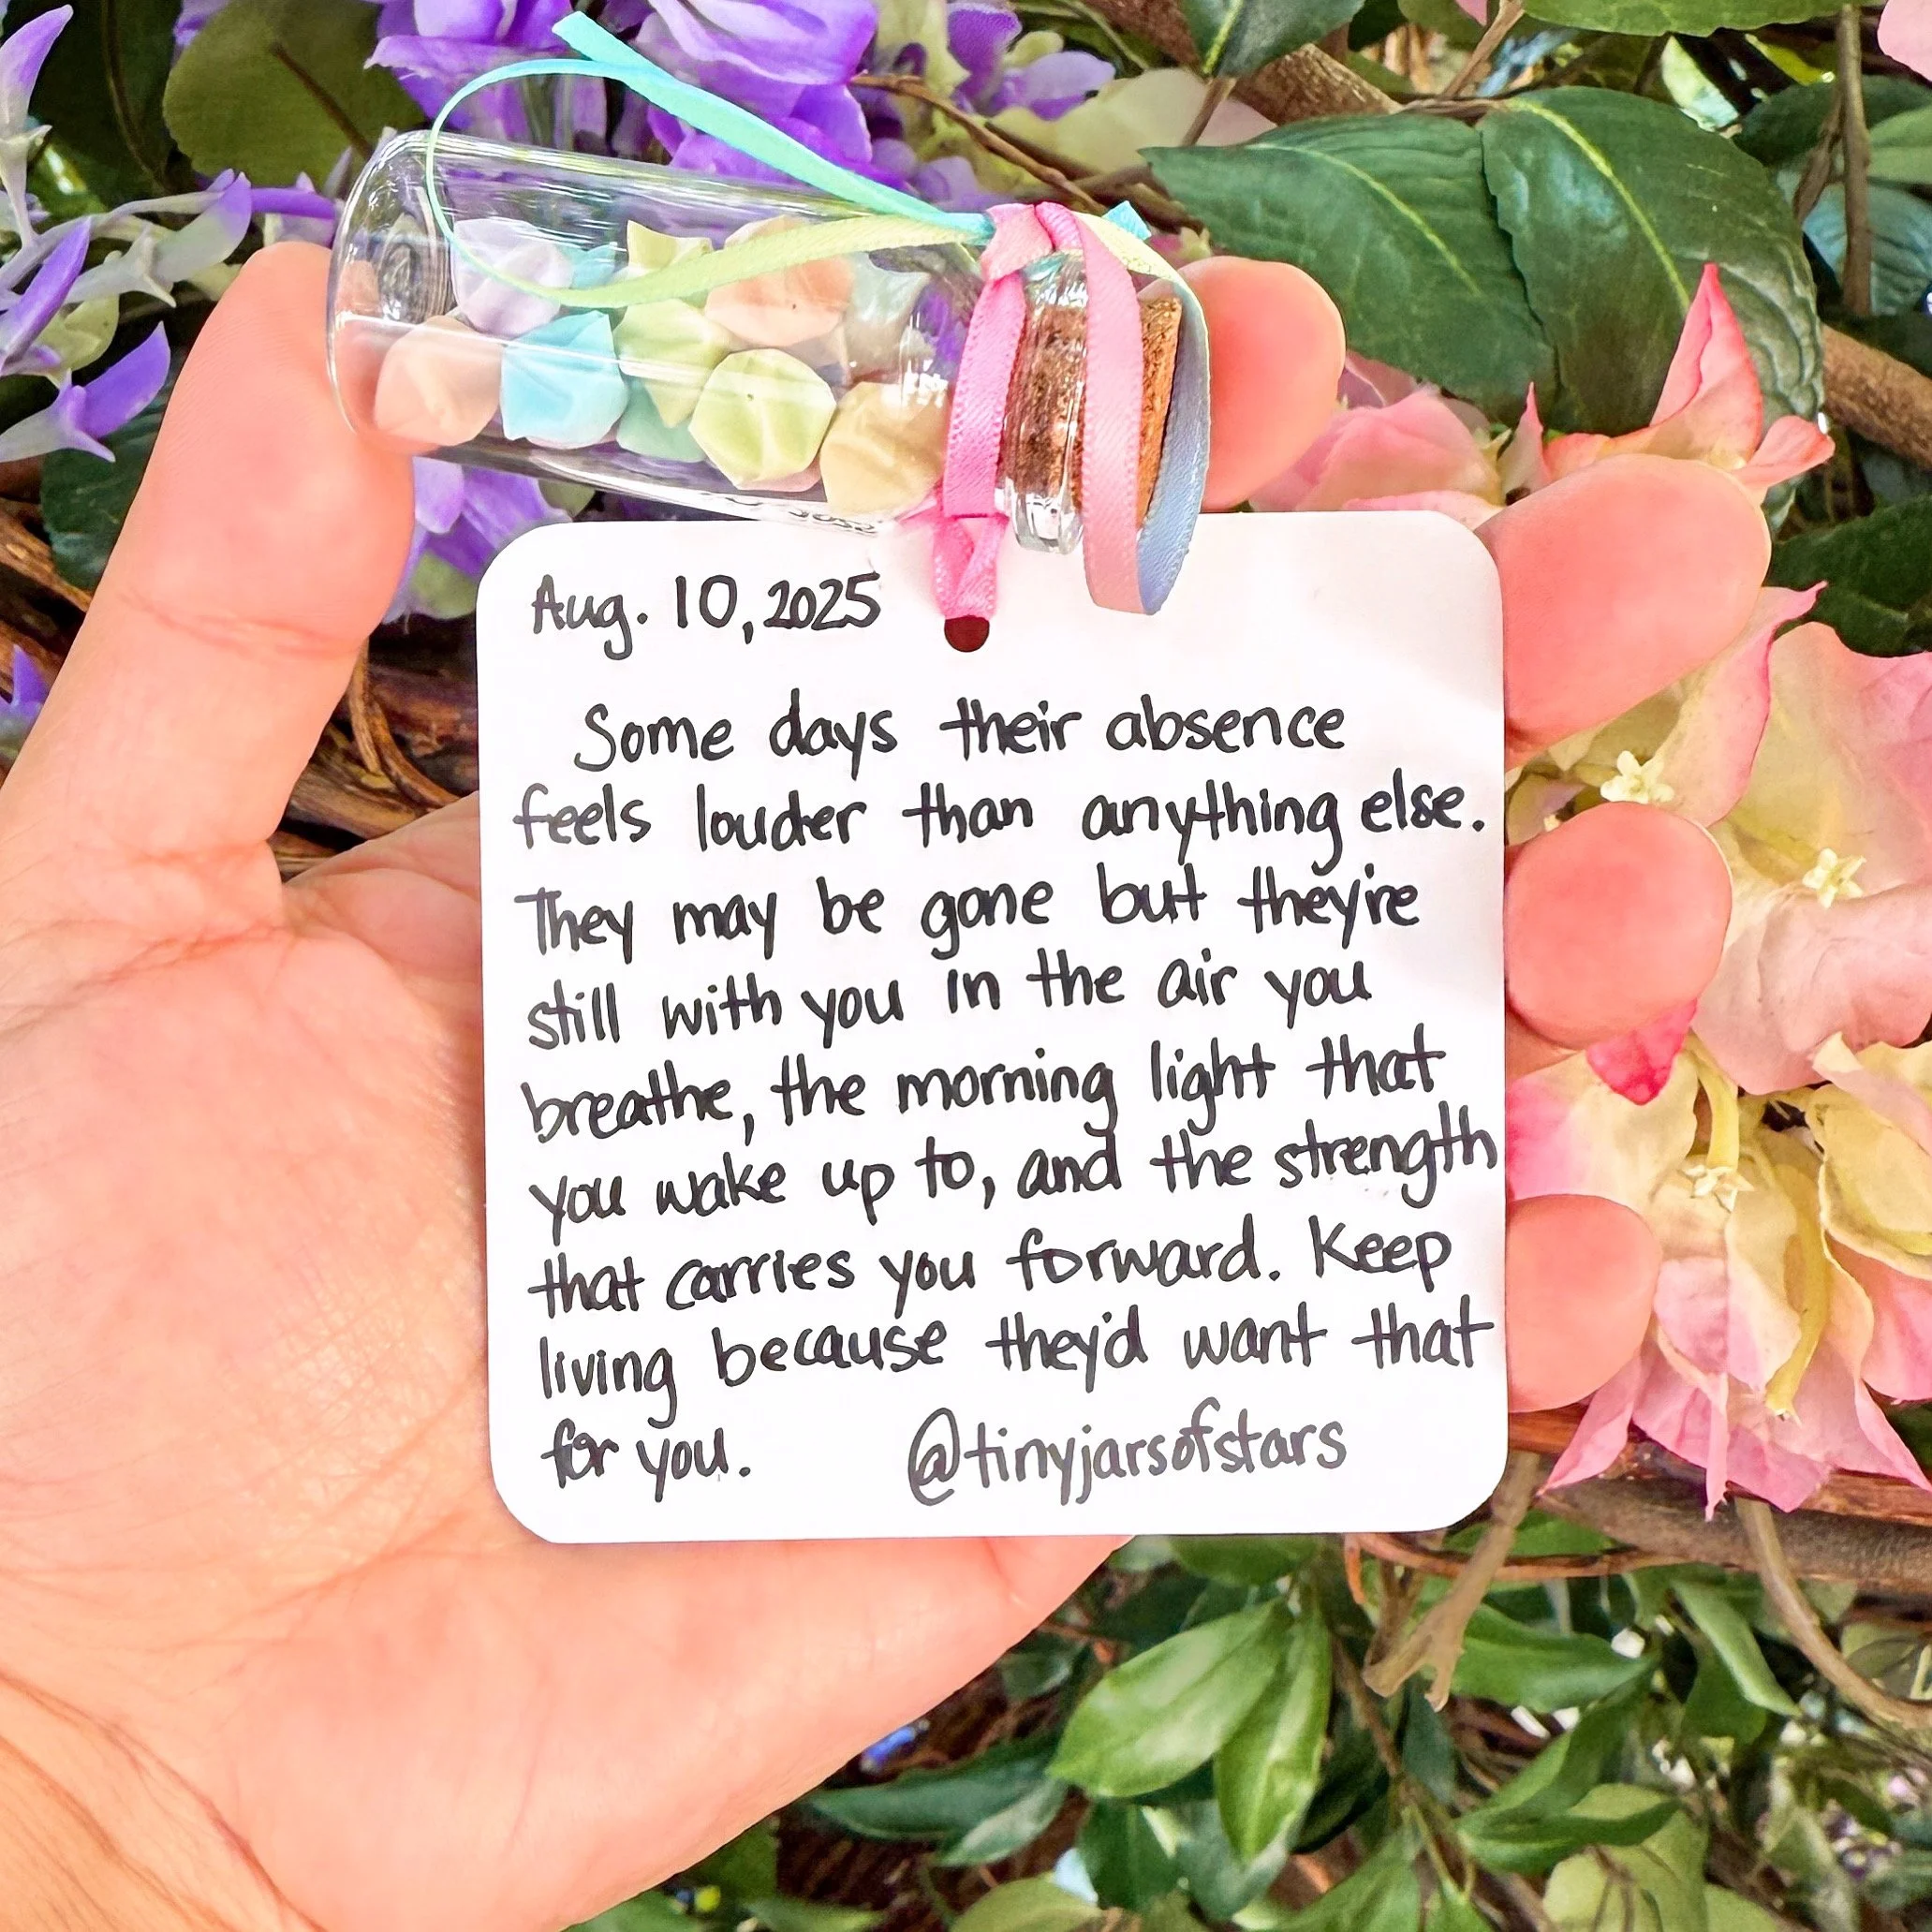 Aug. 10, 2025
Some days their absence
feels louder than anything else.
They may be gone but they're
still with you in the air you
breathe, the morning light that
you wake up to, and the strength
that carries you forward. Keep
living because they'd want that
for you. @tinyjarsofstars